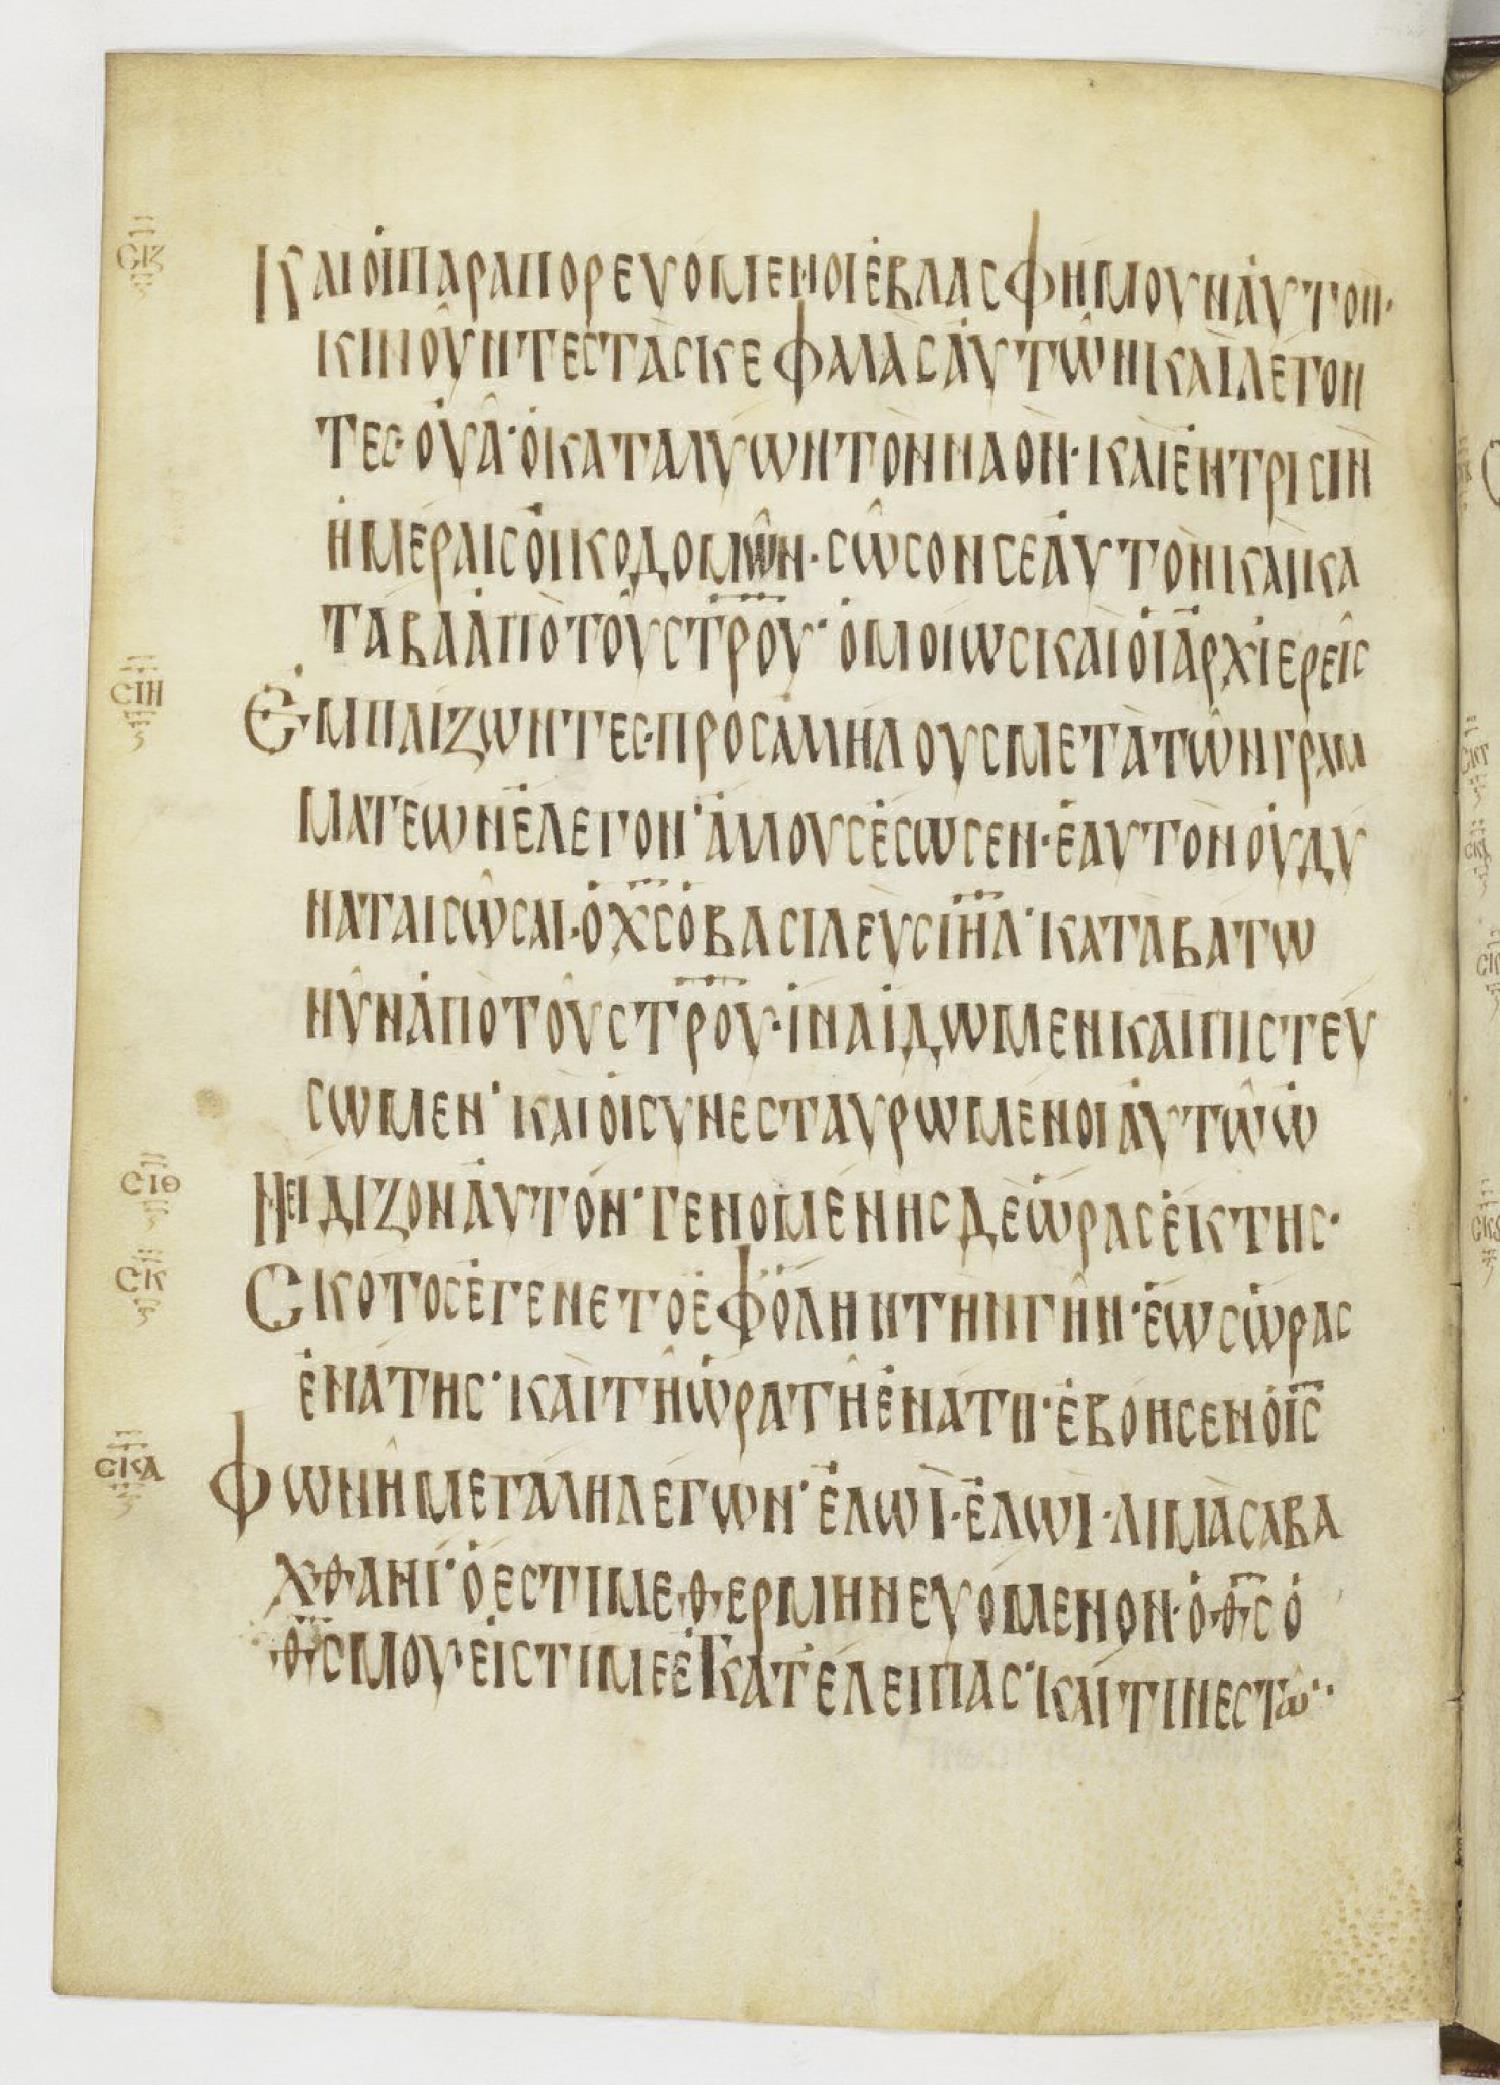 ϹΙΖ
ΚΑΙ ΟΙ ΠΑΡΑΠΟΡΕΥΟΜΕΝΟΙ ΕΒΛΑϹΦΗΜΟΥΝ ΑΥΤΟΝ·
ΚΙΝΟΥΝΤΕϹ ΤΑϹ ΚΕΦΑΛΑϹ ΑΥΤΩΝ ΚΑΙ ΛΕΓΟΝ
ΤΕϹ· ΟΥΑ· Ο ΚΑΤΑΛΥΩΝ ΤΟΝ ΝΑΟΝ· ΚΑΙ ΕΝ ΤΡΙϹΙΝ
ΗΜΕΡΑΙϹ ΟΙΚΟΔΟΜΩΝ· ϹΩϹΟΝ ϹΕΑΥΤΟΝ ΚΑΙ ΚΑ
ΤΑΒΑ ΑΠΟ ΤΟΥ ϹΤΡΟΥ· ΟΜΟΙΩϹ ΚΑΙ ΟΙ ΑΡΧΙΕΡΕΙϹ
ϹΙΗ
ΕΜΠΑΙΖΩΝΤΕϹ· ΠΡΟϹ ΑΛΛΗΛΟΥϹ ΜΕΤΑ ΤΩΝ ΓΡΑΜ
ΜΑΤΕΩΝ ΕΛΕΓΟΝ· ΑΛΛΟΥϹ ΕϹΩϹΕΝ· ΕΑΥΤΟΝ ΟΥ ΔΥ
ΝΑΤΑΙ ϹΩϹΑΙ· Ο ΧϹ Ο ΒΑϹΙΛΕΥϹ ΙΗΛ· ΚΑΤΑΒΑΤΩ
ΝΥΝ ΑΠΟ ΤΟΥ ϹΤΡΟΥ· ΙΝΑ ΙΔΩΜΕΝ ΚΑΙ ΠΙϹΤΕΥ
ϹΩΜΕΝ· ΚΑΙ ΟΙ ϹΥΝΕϹΤΑΥΡΩΜΕΝΟΙ ΑΥΤΩ Ω
ϹΙΘ
ΝΕΙΔΙΖΟΝ ΑΥΤΟΝ· ΓΕΝΟΜΕΝΗϹ ΔΕ ΩΡΑϹ ΕΚΤΗϹ·
ϹΚ
ϹΚΟΤΟϹ ΕΓΕΝΕΤΟ ΕΦ ΟΛΗΝ ΤΗΝ ΓΗΝ· ΕΩϹ ΩΡΑϹ
ΕΝΑΤΗϹ· ΚΑΙ ΤΗ ΩΡΑ ΤΗ ΕΝΑΤΗ· ΕΒΟΗϹΕΝ Ο ΙϹ
ϹΚΑ
ΦΩΝΗ ΜΕΓΑΛΗ ΛΕΓΩΝ· ΕΛΩΙ· ΕΛΩΙ· ΛΙΜΑ ϹΑΒΑ
ΧΘΑΝΙ· Ο ΕϹΤΙ ΜΕΘΕΡΜΗΝΕΥΟΜΕΝΟΝ· Ο ΘϹ Ο
ΘϹ ΜΟΥ· ΕΙϹ ΤΙ ΜΕ ΕΓΚΑΤΕΛΕΙΠΑϹ· ΚΑΙ ΤΙΝΕϹ ΤΩ··